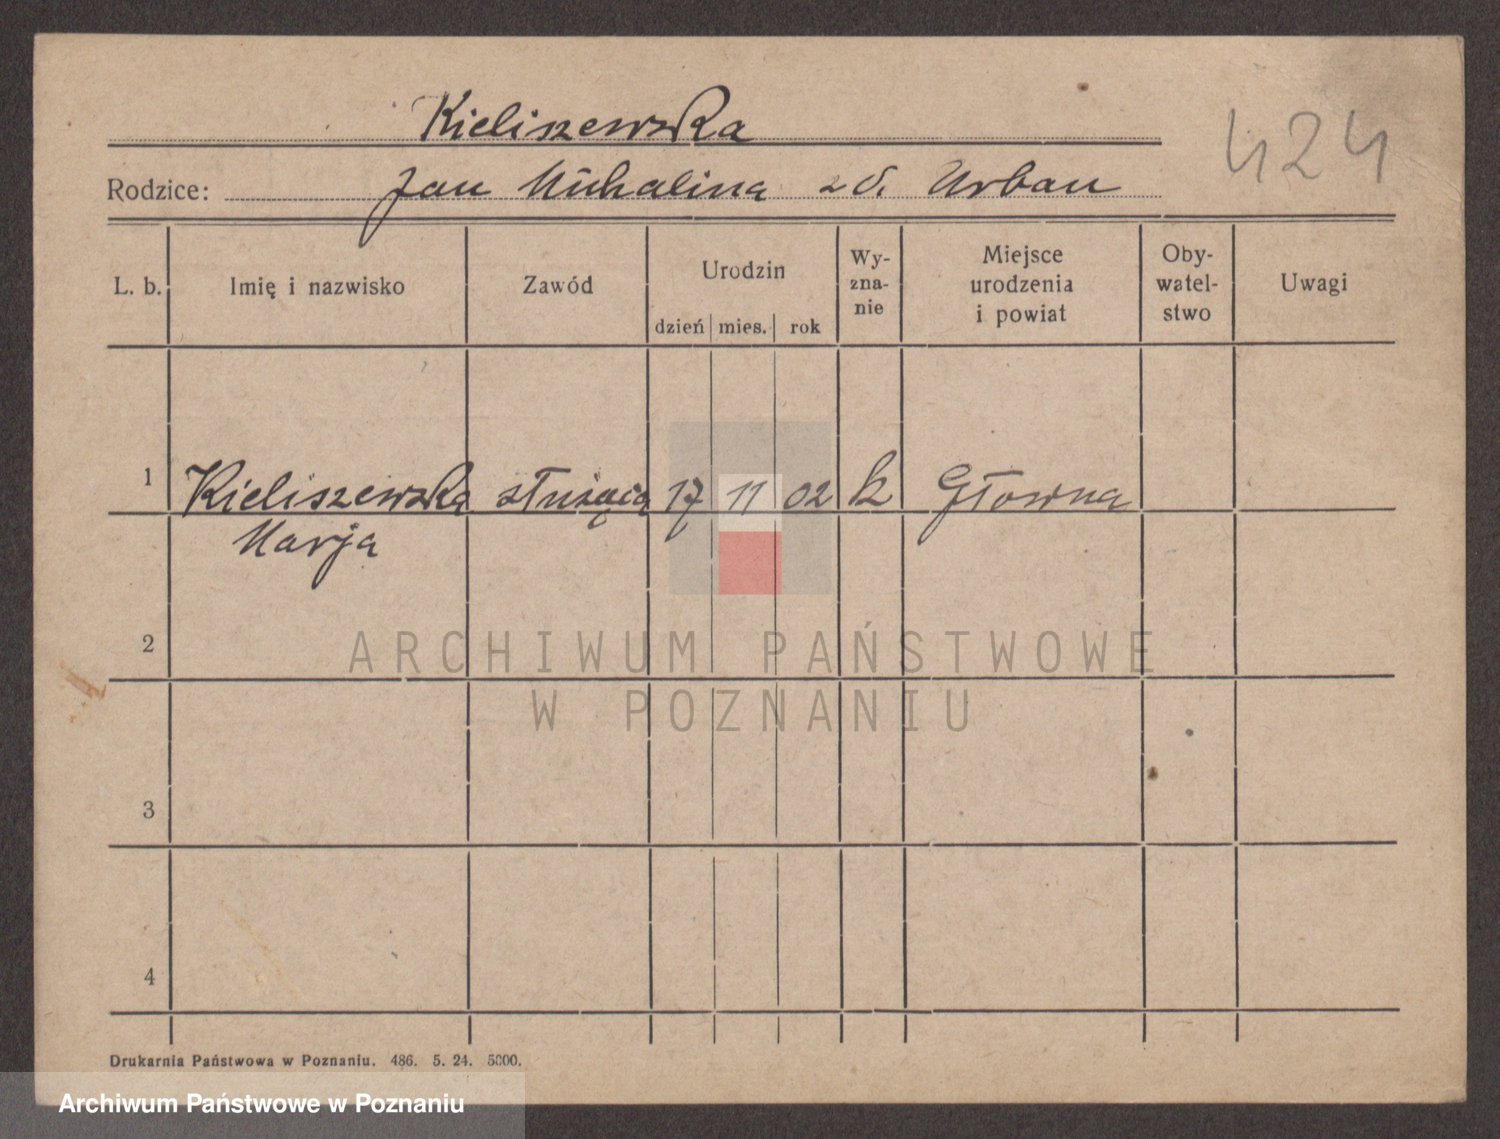 Kieliszewska
424
Rodzice: Jan Michalina zd. Urban
L. b. Imię i nazwisko Zawód Urodzin Wy-zna-nie Miejsce urodzenia i powiat Oby-watel-stwo Uwagi
dzień mies. rok
1 Kieliszewska służąca 17 11 02 k Główna
Marja
2
ARCHIWUM PAŃSTWOWE
W POZNANIU
3
4
Drukarnia Państwowa w Poznaniu. 486. 5. 24. 5000.
Archiwum Państwowe w Poznaniu